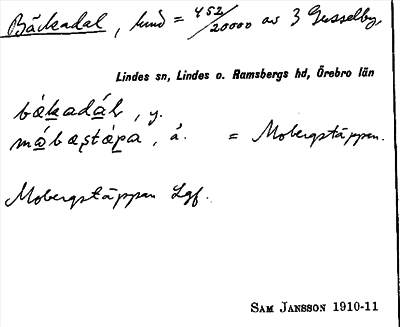 Bäckadal, lund = 452/20000 av 3 Gusselby,
Lindes sn, Lindes o. Ramsbergs hd, Örebro län
bákadáh, y.
mábæstápa, á. = Mobergstäppan.
Mobergstäppan Lgf.
SAM JANSSON 1910-11